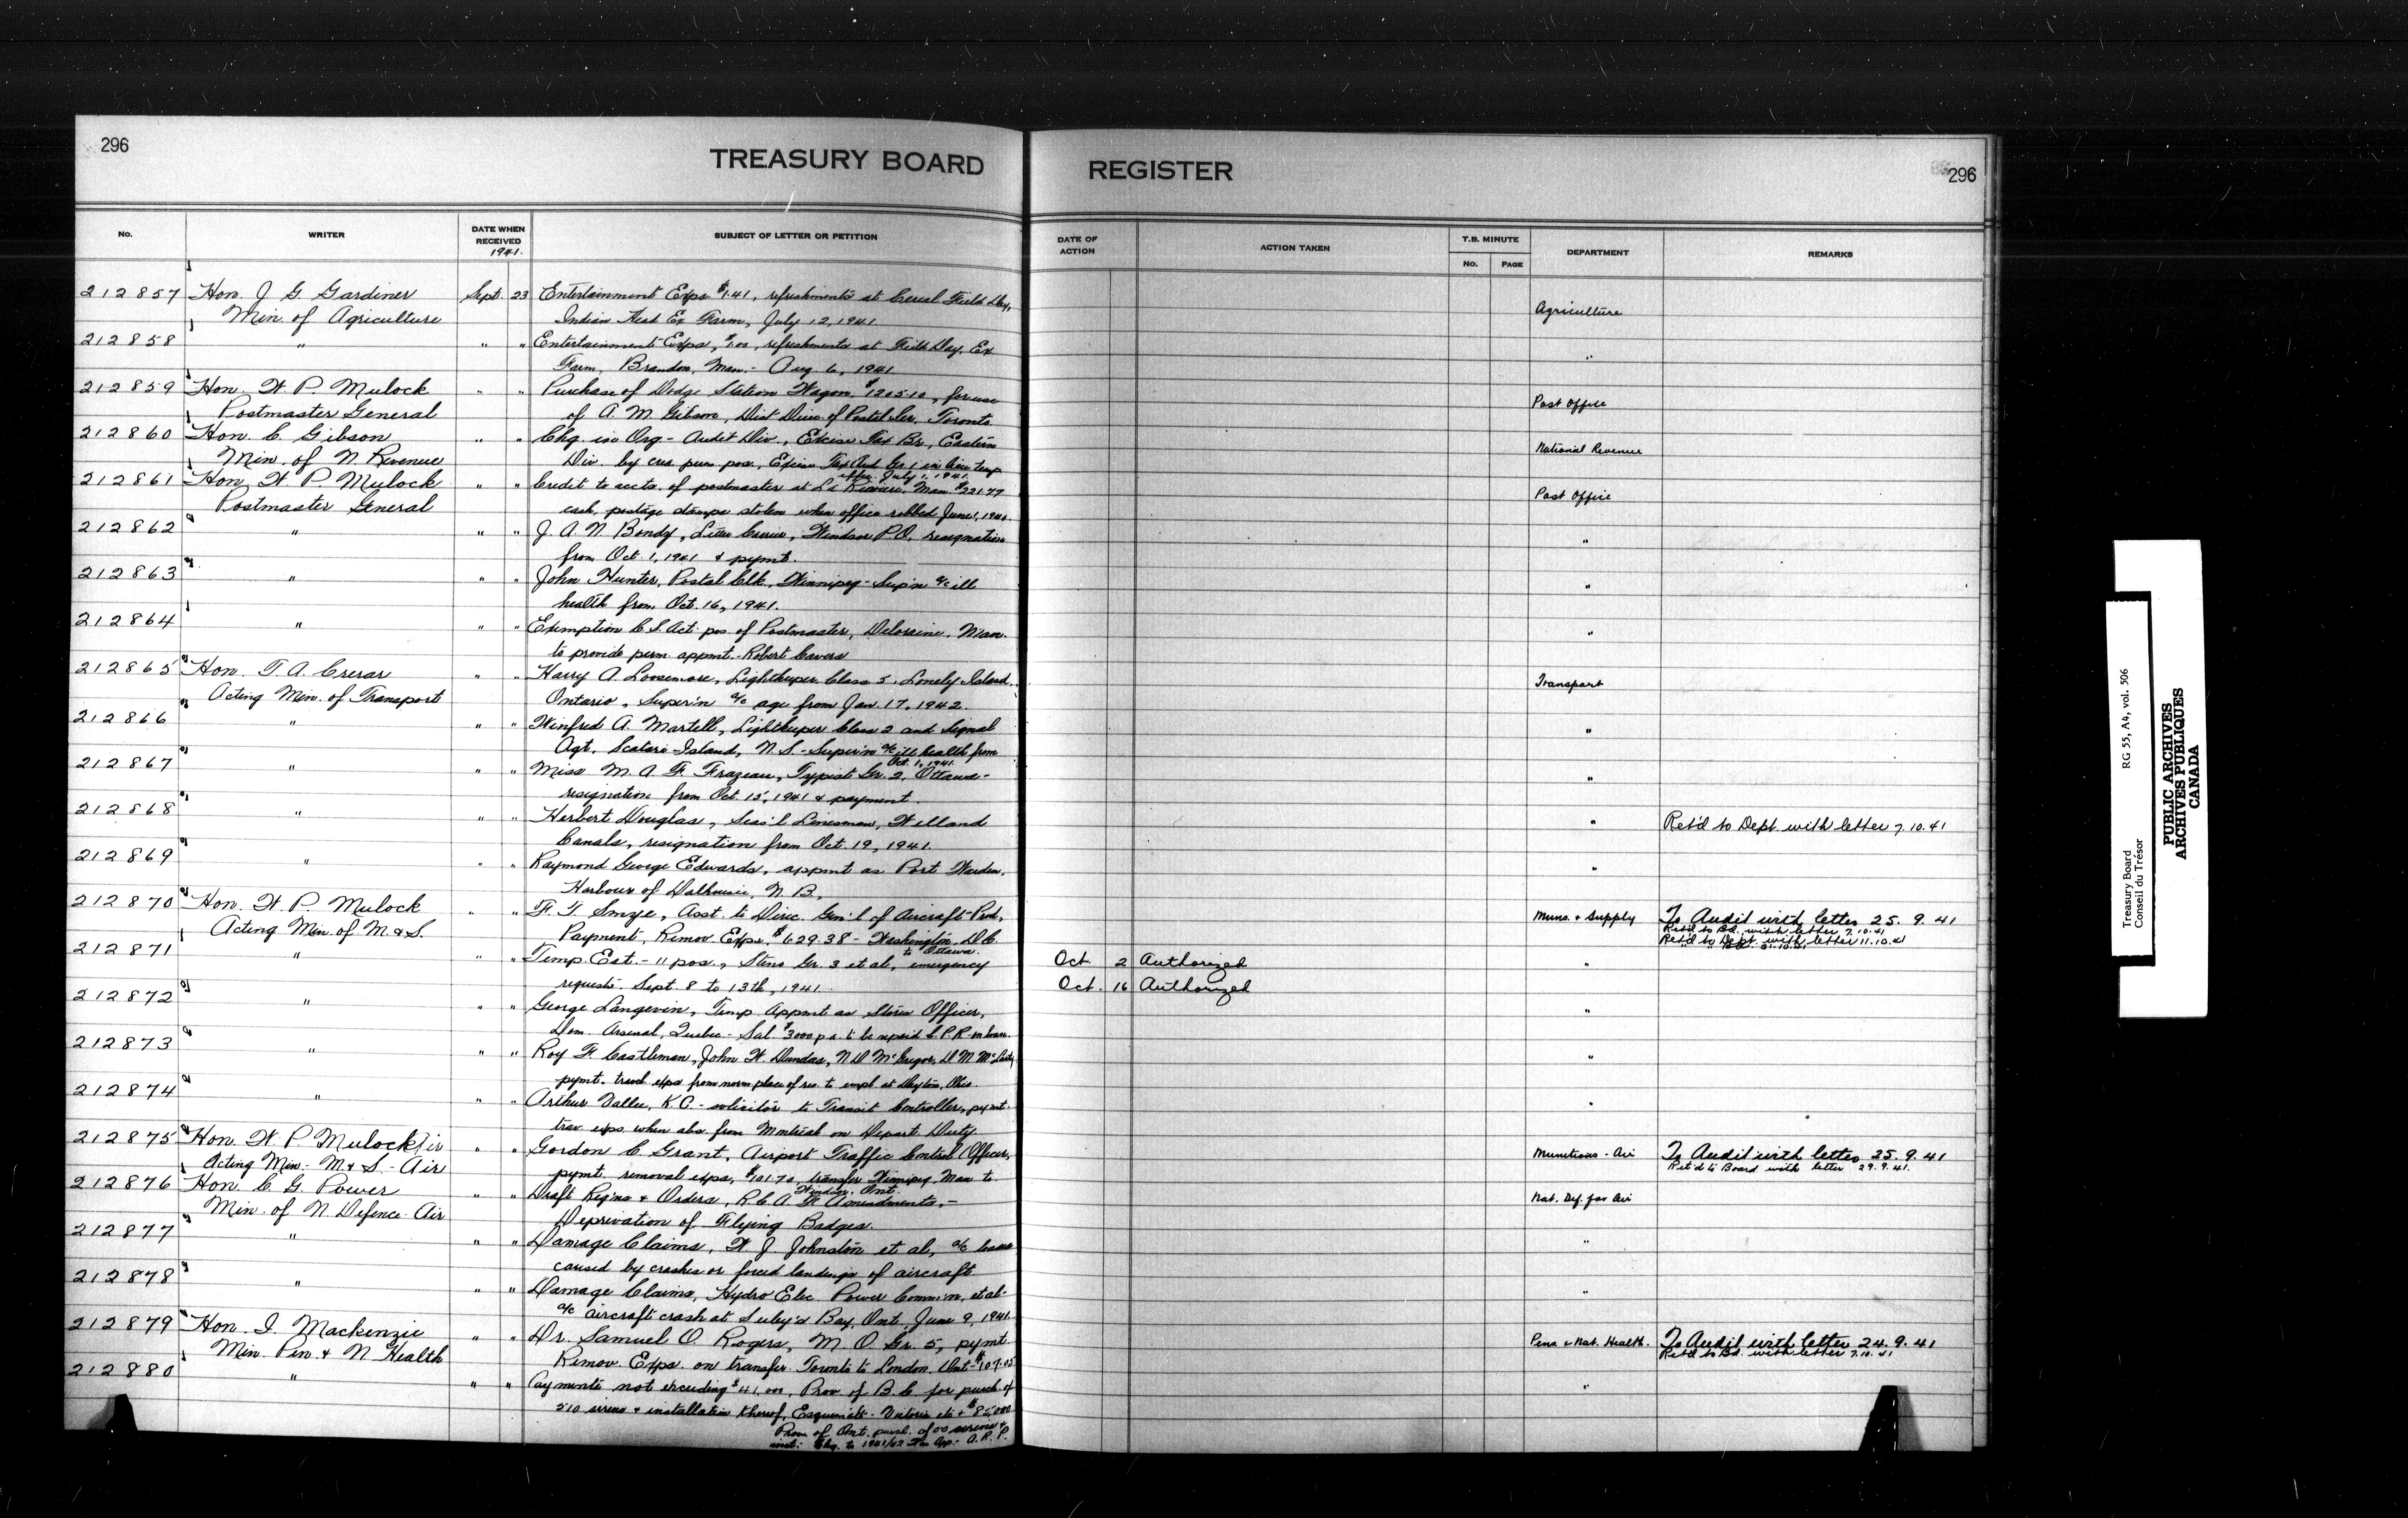 296
TREASURY BOARD
No.
WRITER
DATE WHEN RECEIVED
1941.
SUBJECT OF LETTER OR PETITION
212857 Hon. J. G. Gardiner Sept. 23 Entertainment Exps. $1.41, refreshments at Cereal Field Day,
Min. of Agriculture Indian Head Ex Farm, July 12, 1941
212858 " " " Entertainment Exps, refreshments at Field Day, Ex.
Farm, Brandon, Man. - Aug. 6, 1941
212859 Hon. W. P. Mulock " " Purchase of Dodge Station Wagon, $1205.10, for use
Postmaster General of A. M. Gibson, Dist Direc. of Postal Ser. Toronto
212860 Hon. C. Gibson " " Chg. in Org - Audit Div., Excise Tax Br., Eastern
Min. of N. Revenue Div. by cre. perm. pos., Excise Tax Aud. Gr. 1 in lieu temp
after July 1, 1941.
212861 Hon. W. P. Mulock " " Credit to accts. of postmaster at La Riviere, Man. $221.77
Postmaster General cash, postage stamps stolen when office robbed June 1, 1940.
212862 " " " J. A. N. Bondy, Letter Carrier, Windsor P.O. resignation
from Oct. 1, 1941 & pymt.
212863 " " " John Hunter, Postal Clk, Winnipeg - Sup'n a/c ill
health from Oct. 16, 1941.
212864 " " " Exemption C.S. Act. pos. of Postmaster, Deloraine, Man.
to provide perm. appmt. - Robert Cavers
212865 Hon. T. A. Crerar " " Harry A. Loosemore, Lightkeeper Class 5, Lonely Island,
Acting Min. of Transport Ontario, Super'n a/c age from Jan. 17, 1942.
212866 " " " Winfred A. Martell, Lightkeeper Class 2 and Signal
Agt. Scatari Island, N.S. - Super'n a/c ill health from
Oct. 1, 1941
212867 " " " Miss M. A. F. Frazeau, Typist Gr. 2, Ottawa -
resignation from Oct. 15, 1941 & payment.
212868 " " " Herbert Douglas, Seas'l Linesman, Welland
Canals, resignation from Oct. 19, 1941.
212869 " " " Raymond George Edwards, appmt as Port Warden,
Harbour of Dalhousie, N.B.
212870 Hon. W. P. Mulock " " F. T. Smye, Asst. to Direc. Gen'l of Aircraft Prod,
Acting Min. of M. & S. Payment, Remov. Exps. $629.38 - Washington, D.C.
to Ottawa.
212871 " " " Temp. Est. - 11 pos., Steno Gr. 3 et al, emergency
requests. Sept. 8 to 13th, 1941
212872 " " " George Langevin, Temp. Appmt as Stores Officer,
Dom. Arsenal, Quebec - Sal. $3000 p.a. to be repaid C.P.R. - on loan.
212873 " " " Roy F. Castleman, John W. Dundas, N D McGregor, D M McLarty
pymt. travel. exps from norm. place of res. to empl. at Dayton, Ohio.
212874 " " " Arthur Vallee, K.C. - solicitor to Transit Controller, pymt.
trav. exps when abs. from Montreal on Depart. Duty
212875 Hon. W. P. Mulock Air " " Gordon C. Grant, Airport Traffic Control Officer,
Acting Min. - M. & S. - Air pymt. removal exps, $101.70, transfer Winnipeg, Man to
Windsor, Ont.
212876 Hon. C. G. Power " " Draft Reg'ns & Orders, R.C.A.F. Amendments, -
Min. of N. Defence Air Deprivation of Flying Badges.
212877 " " " Damage Claims, W. J. Johnston et al, a/c losses
caused by crashes or forced landings of aircraft.
212878 " " " Damage Claims, Hydro Elec. Power Comm'n, et al-
a/c aircraft crash at Bay, Ont, June 9, 1941.
212879 Hon. I. Mackenzie " " Dr. Samuel O. Rogers, M.O. Gr. 5, pymt.
Min. Pen. & N. Health Remov. Exps. on transfer Toronto to London, Ont - $107.05
212880 " " " Payments not exceeding $41,000, Prov. of B.C. for purch. of
210 sirens & installation thereof, Esquimalt - Victoria etc & $85,000
Prov. of Ont. purch. of sirens &
inst: Chg. to 1941/42 War App. - A.R.P.
REGISTER
296
DATE OF ACTION
ACTION TAKEN
T.B. MINUTE
No.
PAGE
DEPARTMENT
REMARKS
Agriculture
"
Post Office
National Revenue
Post Office
"
"
"
Transport
"
"
" Ret'd to Dept. with letter 7.10.41
"
Muns. & Supply To Audit with letter 25.9.41
Ret'd to Bd. with letter 7.10.41
Ret'd to Dept. with letter 11.10.41
Oct. 2 Authorized "
Oct. 16 Authorized
"
"
"
Munitions - Air To Audit with letter 25.9.41
Ret'd to Board with letter 29.9.41.
Nat. Def. for Air
"
"
Pens & Nat. Health. To Audit with letter 24.9.41
Ret'd to Bd. with letter 7.10.41
"
Treasury Board RG 55, A4, vol. 506
Conseil du Trésor
PUBLIC ARCHIVES
ARCHIVES PUBLIQUES
CANADA